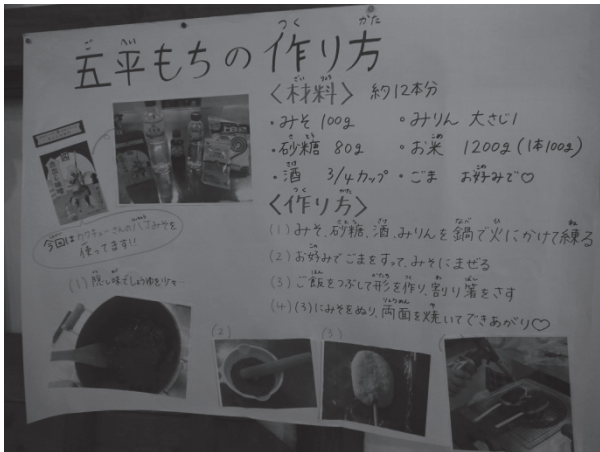 五平もちの作り方
〈材料〉 約12本分
・みそ 100g ・みりん 大さじ1
・砂糖 80g ・お米 1200g(1本100g)
・酒 3/4カップ ・ごま お好みで♡
〈作り方〉
(1) みそ、砂糖、酒、みりんを鍋で火にかけて練る
(2) お好みでごまをすって、みそにまぜる
(3) ご飯をつぶして形を作り、割り箸をさす
(4) (3)にみそをぬり、両面を焼いてできあがり♡
今回はカクキューさんの八丁みそを
使ってます!!
(1) 隠し味でしょうゆを少々…
(2)
(3)